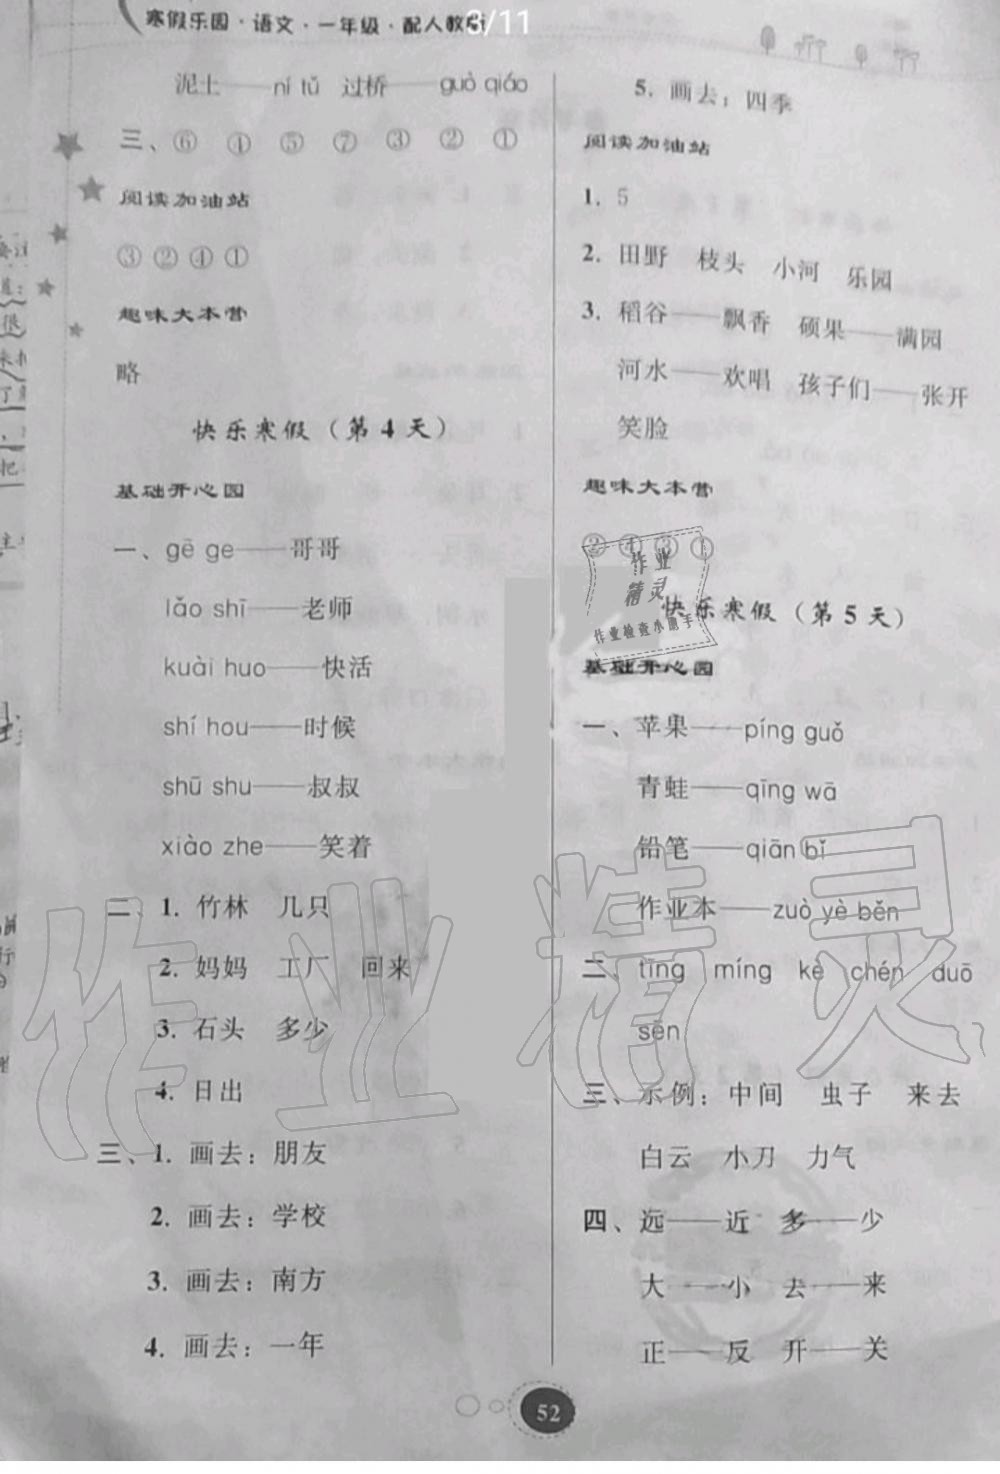 寒假乐园·语文·一年级·配人教版
3/11
泥土——ní tǔ 过桥——guò qiáo
三、⑥ ④ ⑤ ⑦ ③ ② ①
阅读加油站
③ ② ④ ①
趣味大本营
略
快乐寒假（第4天）
基础开心园
一、gē ge——哥哥
lǎo shī——老师
kuài huo——快活
shí hou——时候
shū shu——叔叔
xiào zhe——笑着
二、1. 竹林 几只
2. 妈妈 工厂 回来
3. 石头 多少
4. 日出
三、1. 画去：朋友
2. 画去：学校
3. 画去：南方
4. 画去：一年
5. 画去：四季
阅读加油站
1. 5
2. 田野 枝头 小河 乐园
3. 稻谷——飘香 硕果——满园
河水——欢唱 孩子们——张开
笑脸
趣味大本营
② ④ ③ ①
快乐寒假（第5天）
基础开心园
一、苹果——píng guǒ
青蛙——qīng wā
铅笔——qiān bǐ
作业本——zuò yè běn
二、tīng míng kè chén duō
sēn
三、示例：中间 虫子 来去
白云 小刀 力气
四、远——近 多——少
大——小 去——来
正——反 开——关
52
作业
精灵
作业检查小助手
作业精灵